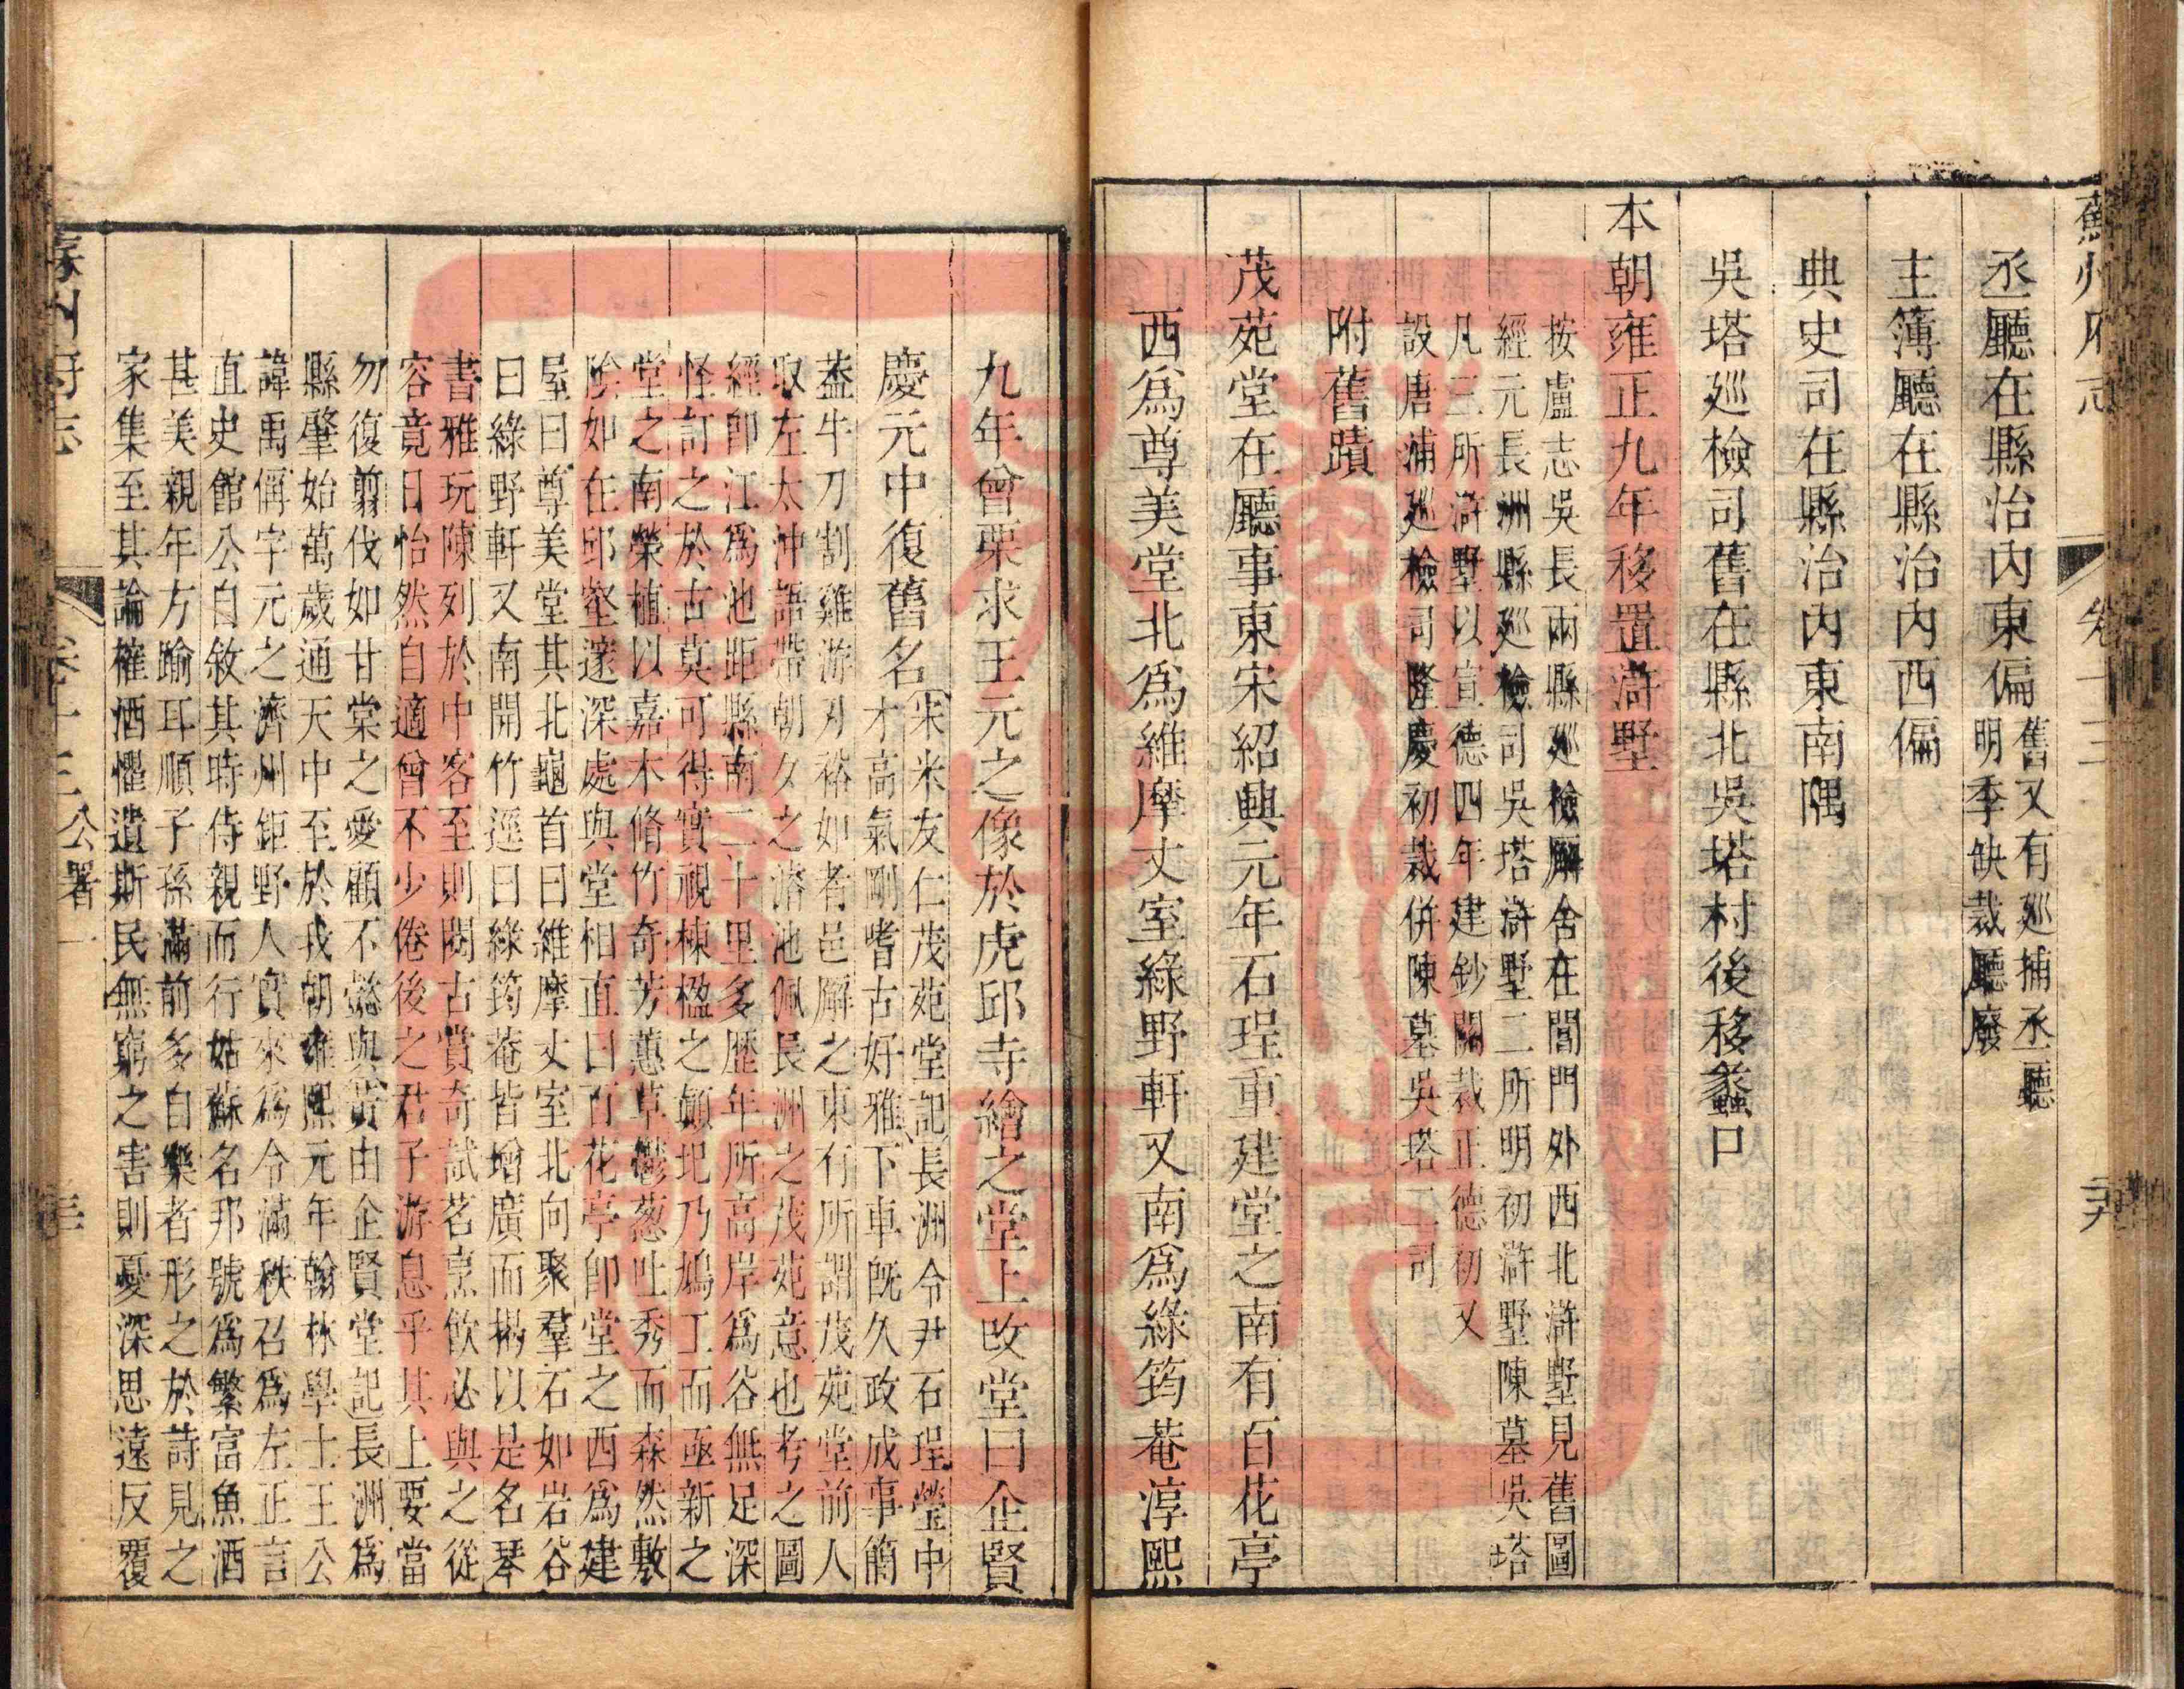 蘇州府志
卷十三
丞廳在縣治內東偏舊又有巡捕丞廳
明季缺裁廳廢
主簿廳在縣治內西偏
典史司在縣治內東南隅
吳塔廵檢司舊在縣北吳塔村後移蠡口
本朝雍正九年移置滸墅
按盧志吳長兩縣廵檢廨舍在閶門外西北滸墅見舊圖
經元長洲縣廵檢司吳塔滸墅二所明初滸墅陳墓吳塔
凡三所滸墅以宣德四年建鈔關裁正德初又
設唐浦廵檢司隆慶初裁併陳墓吳塔二司
附舊蹟
茂苑堂在廳事東宋紹興元年石珵重建堂之南有百花亭
西爲尊美堂北爲維摩丈室綠野軒又南爲綠筠菴淳熙
九年曾栗求王元之像於虎邱寺繪之堂上改堂曰企賢
慶元中復舊名宋米友仁茂苑堂記長洲令尹石珵瑩中
才高氣剛嗜古好雅下車旣久政成事簡
葢牛刀割雞游刃裕如者邑廨之東有所謂茂苑堂前人
取左太沖語帶朝夕之濬池佩長洲之茂苑意也考之圖
經卽江爲池距縣南二十里多歷年所高岸爲谷無足深
怪訂之於古莫可得實視棟楹之頓圯乃鳩工而亟新之
堂之南榮植以嘉木脩竹奇芳蕙草鬱葱吐秀而森然敷
陰如在邱壑邃深處與堂相直曰百花亭卽堂之西爲建
屋曰尊美堂其北龜首曰維摩丈室北向聚羣石如岩谷
曰綠野軒又南開竹逕曰綠筠菴皆增廣而揭以是名琴
書雅玩陳列於中客至則閱古賞奇試茗烹飲必與之從
容竟日怡然自適曾不少倦後之君子游息乎其上要當
勿復翦伐如甘棠之愛顧不懿與黃由企賢堂記長洲爲
縣肇始萬歲通天中至於我朝雍熙元年翰林學士王公
諱禹偁字元之濟州鉅野人實來爲令滿秩召爲左正言
直史館公自敘其時侍親而行姑蘇名邦號爲繁富魚酒
甚美親年方踰耳順子孫滿前多自樂者形之於詩見之
家集至其論榷酒懼遺斯民無窮之害則憂深思遠反覆
蘇州府志
卷十三 公署一